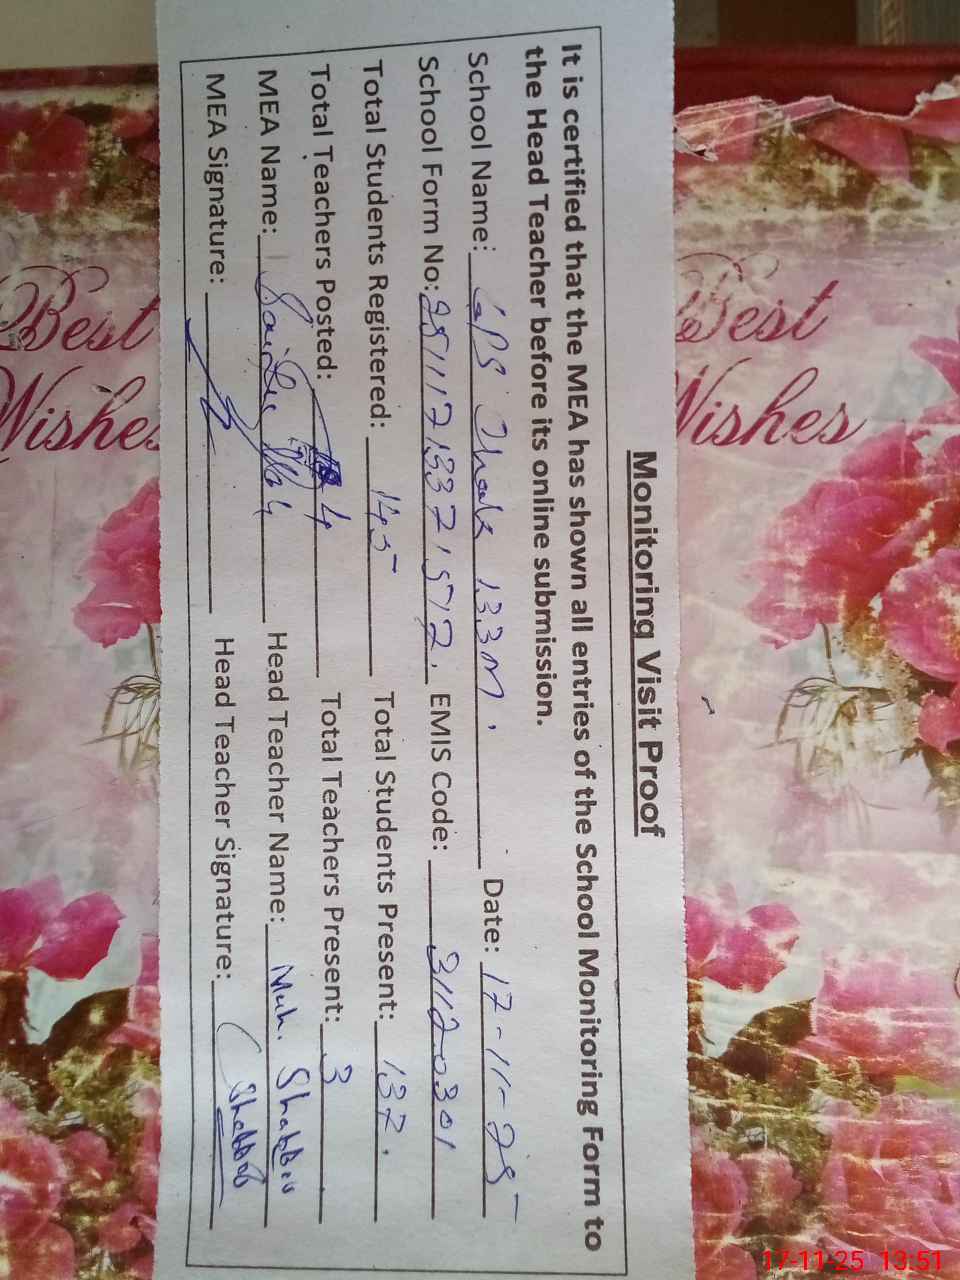 Monitoring Visit Proof
It is certified that the MEA has shown all entries of the School Monitoring Form to
the Head Teacher before its online submission.
School Name: GPS Chak 133M. Date: 17-11-25
School Form No: EMIS Code: 31120301
Total Students Registered: 145 Total Students Present: 137.
Total Teachers Posted: 4 Total Teachers Present: 3
MEA Name: Head Teacher Name: Muh. Shabbir
MEA Signature: Head Teacher Signature:
Best
Wishes
Best
Wishes
17-11-25 13:51